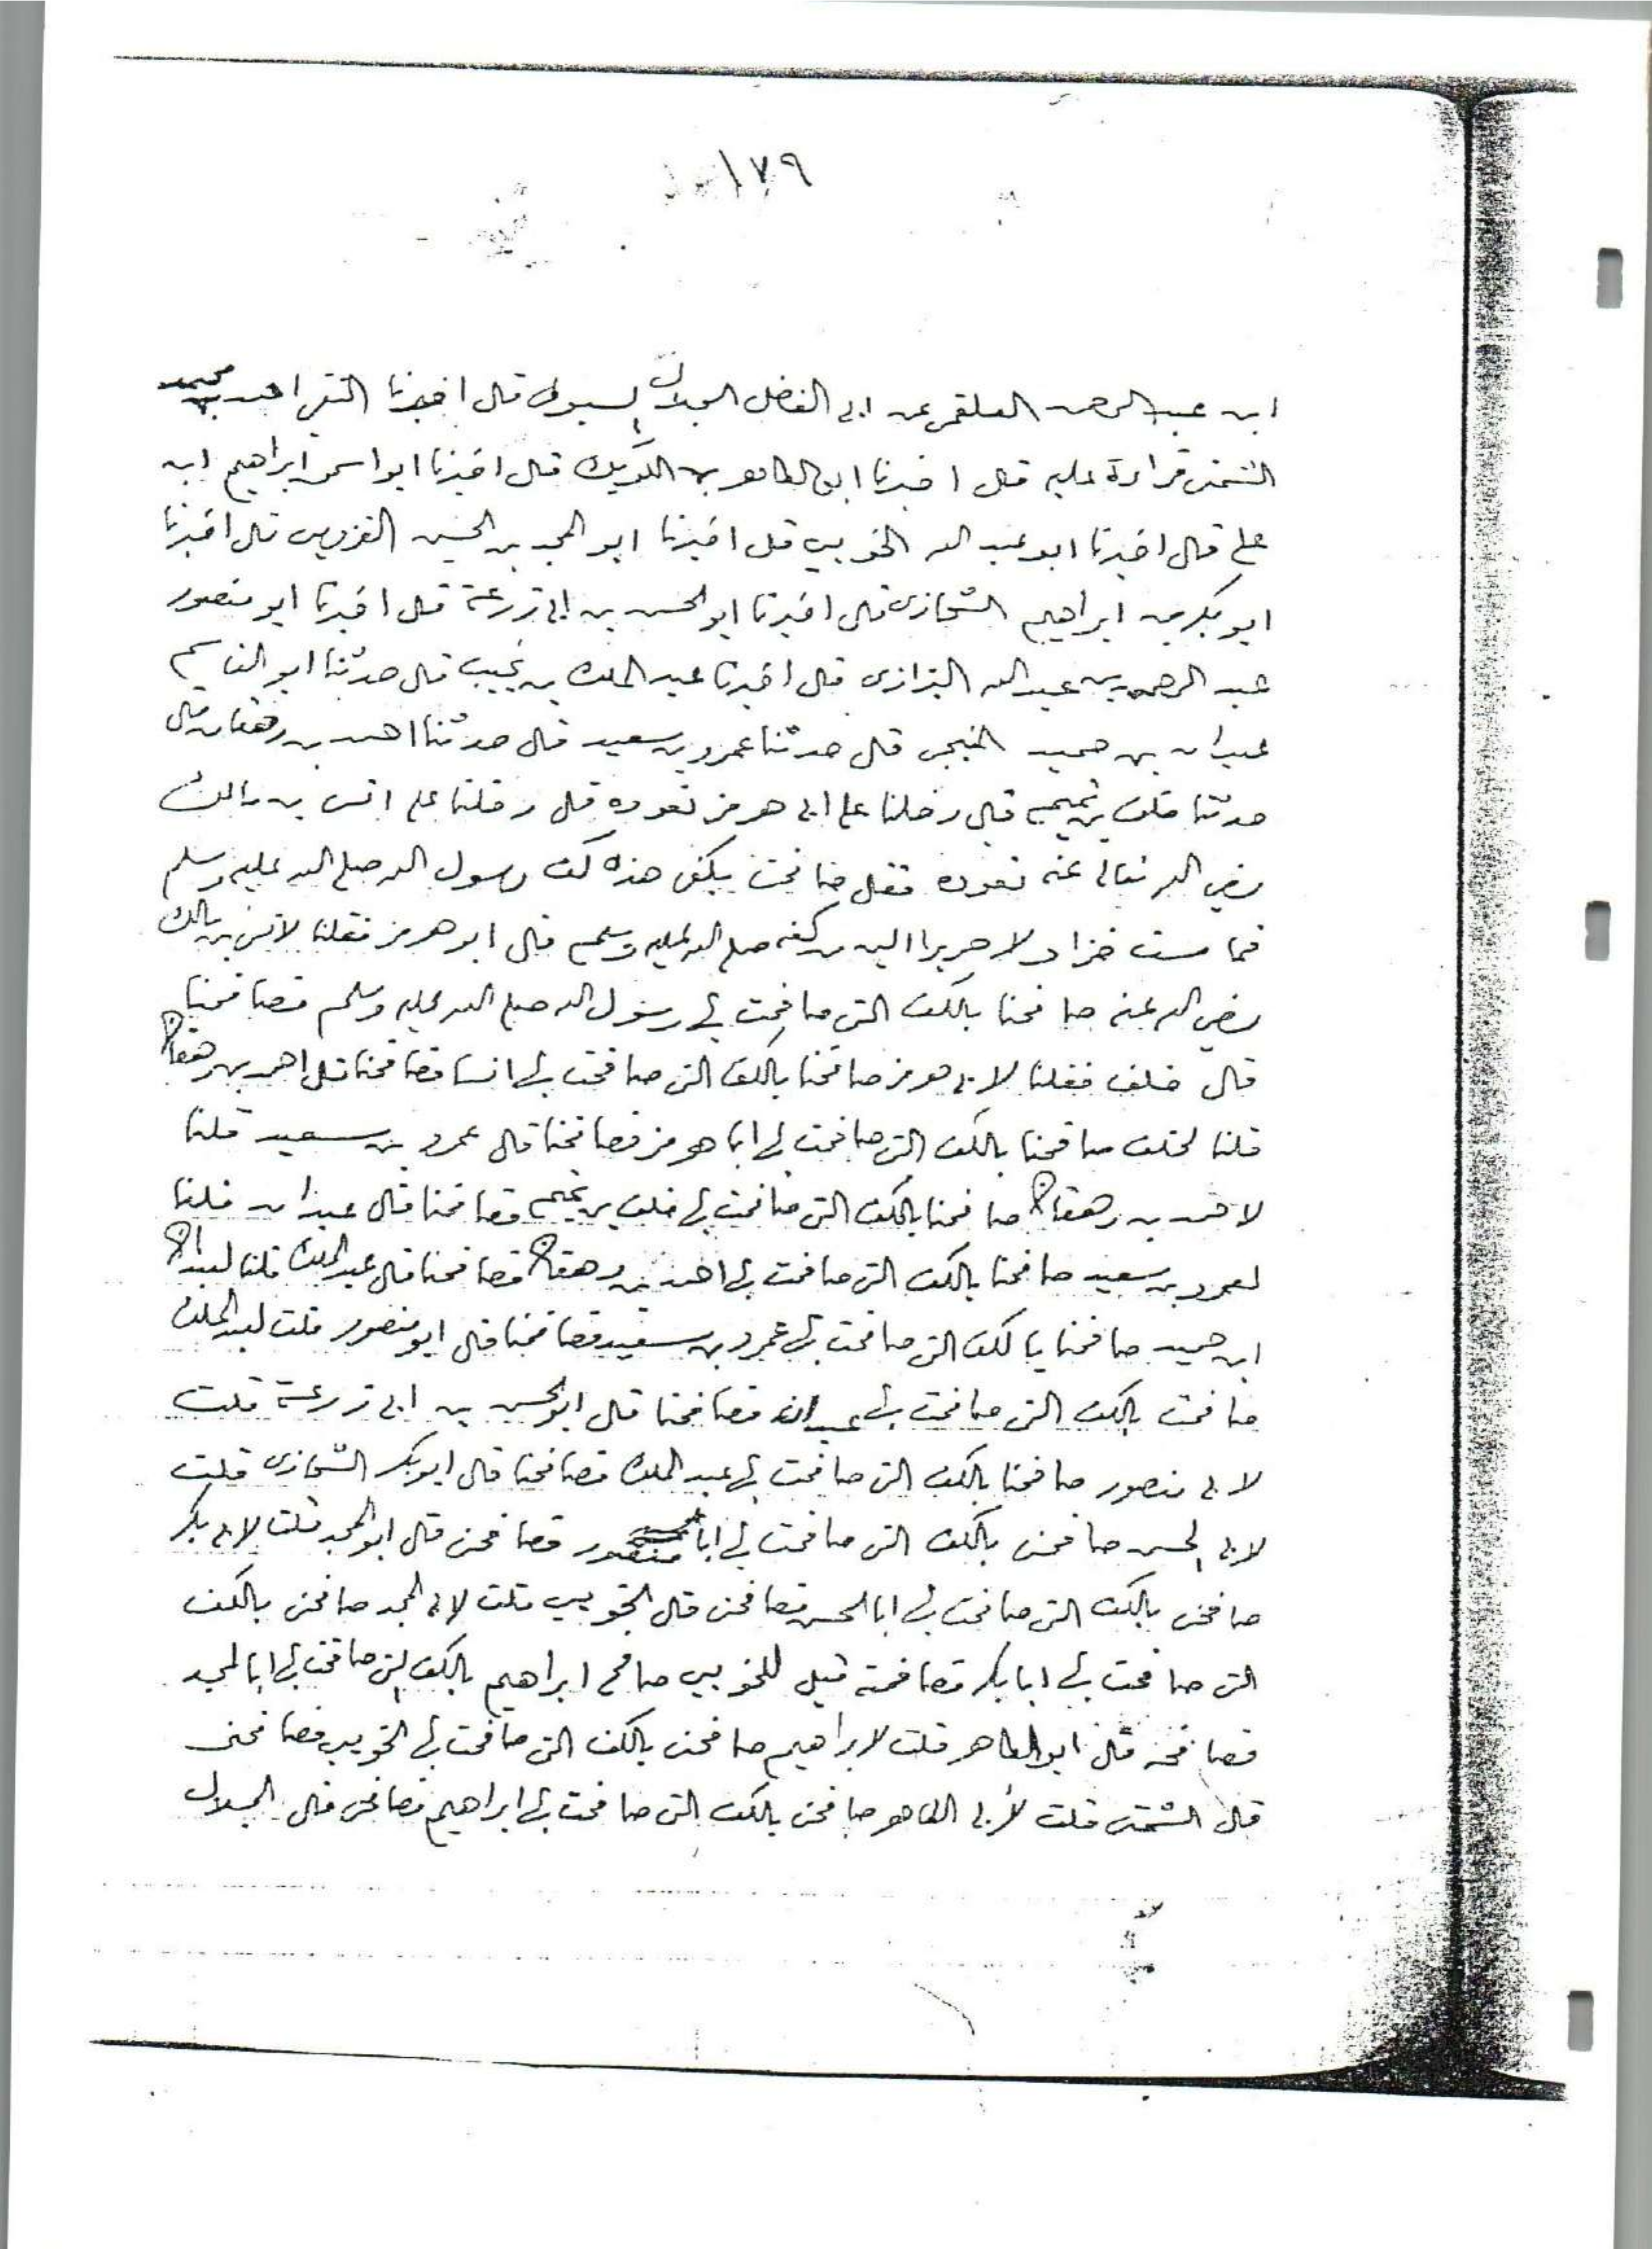 ١٧٩
ابن عبد الرحمن العلقمي عن ابي الفضل الجلال السيوطي قال اخبرنا التقي احمد بن محمد
الشمني قراءة عليه قال اخبرنا ابو الطاهر بن الكويك قال اخبرنا ابو اسحق ابراهيم ابن
علي قال اخبرنا ابو عبد الله الخويي قال اخبرنا ابو المجد بن الحسين القزويني قال اخبرنا
ابو بكر بن ابراهيم الشحاذى قال اخبرنا ابو الحسن بن ابي زرعة قال اخبرنا ابو منصور
عبد الرحمن بن عبد الله البزازى قال اخبرنا عبد الملك بن نجيب قال حدثنا ابو القاسم
عبدان بن حميد المنبجي قال حدثنا عمرو بن سعيد قال حدثنا احمد بن دهقان قال
حدثنا خلف بن تميم قال دخلنا على ابي هرمز نعوده قال دخلنا على انس بن مالك
رضي الله تعالى عنه نعوده فقال صافحت بكفي هذه كف رسول الله صلى الله عليه وسلم
فما مست خزا ولا حريرا الين من كفه صلى الله عليه وسلم قال ابو هرمز فقلنا لانس بن مالك
رضي الله عنه صافحنا بالكف التي صافحت بها رسول الله صلى الله عليه وسلم فصافحنا
قال خلف فقلنا لابي هرمز صافحنا بالكف التي صافحت بها انسا فصافحنا قال احمد بن دهقان
قلنا لخلف صافحنا بالكف التي صافحت بها ابا هرمز فصافحنا قال عمرو بن سعيد قلنا
لاحمد بن دهقان صافحنا بالكف التي صافحت بها خلف بن تميم فصافحنا قال عبدان قلنا
لعمرو بن سعيد صافحنا بالكف التي صافحت بها احمد بن دهقان فصافحنا قال عبد الملك قلنا لعبدان
ابن حميد صافحنا بالكف التي صافحت بها عمرو بن سعيد فصافحنا قال ابو منصور قلت لعبد الملك
صافحت بالكف التي صافحت بها عبدان فصافحنا قال ابو الحسن بن ابي زرعة قلت
لابي منصور صافحنا بالكف التي صافحت بها عبد الملك فصافحنا قال ابو بكر الشحاذى قلت
لابي الحسن صافحني بالكف التي صافحت بها ابا منصور فصافحني قال ابو المجد قلت لابي بكر
صافحني بالكف التي صافحت بها ابا الحسن فصافحني قال الخويي قلت لابي المجد صافحني بالكف
التي صافحت بها ابا بكر فصافحته قيل للخويي صافح ابراهيم بالكف التي صافحت بها ابا المجد
فصافحه قال ابو الطاهر قلت لابراهيم صافحني بالكف التي صافحت بها الخويي فصافحني
قال الشمني قلت لأبي الطاهر صافحني بالكف التي صافحت بها ابراهيم فصافحني قال الجلال